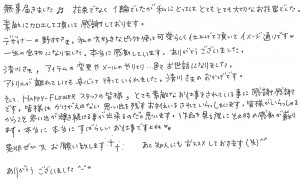 無事届きました♪ 花束でなく1輪でしたが私にとってもとてもとても大切なお花でした。
素敵にカロエして頂いて感謝しております。
デザイナーの野村さま、私の大好きなピンク使って可愛らしく仕上げて頂いてイメージ通りです。
一生の宝物になりました。本当に感謝しています。ありがとうございました。
清川さま、アイテムの変更やメールのやりとり…多々お世話になりました。
アトリエ 離れてしても安心して待っていられました。清川さまのおかげです。
そして、HAPPY-FLOWERスタッフの皆様、とても素敵なお仕事をされている事に感謝感謝
です。皆様はかけがえのない思い出を残すお手伝いをされていらっしゃいます。皆様がいらっしゃる
からこそ思い出が輝き続ける事が出来るのだと思います。作品を見る度にその時の感動が蘇り
ます。本当に、本当にすばらしいお仕事ですよね
是非 お願い致します 友人にもおススメしておきます(笑)^^
ありがとうございました^^